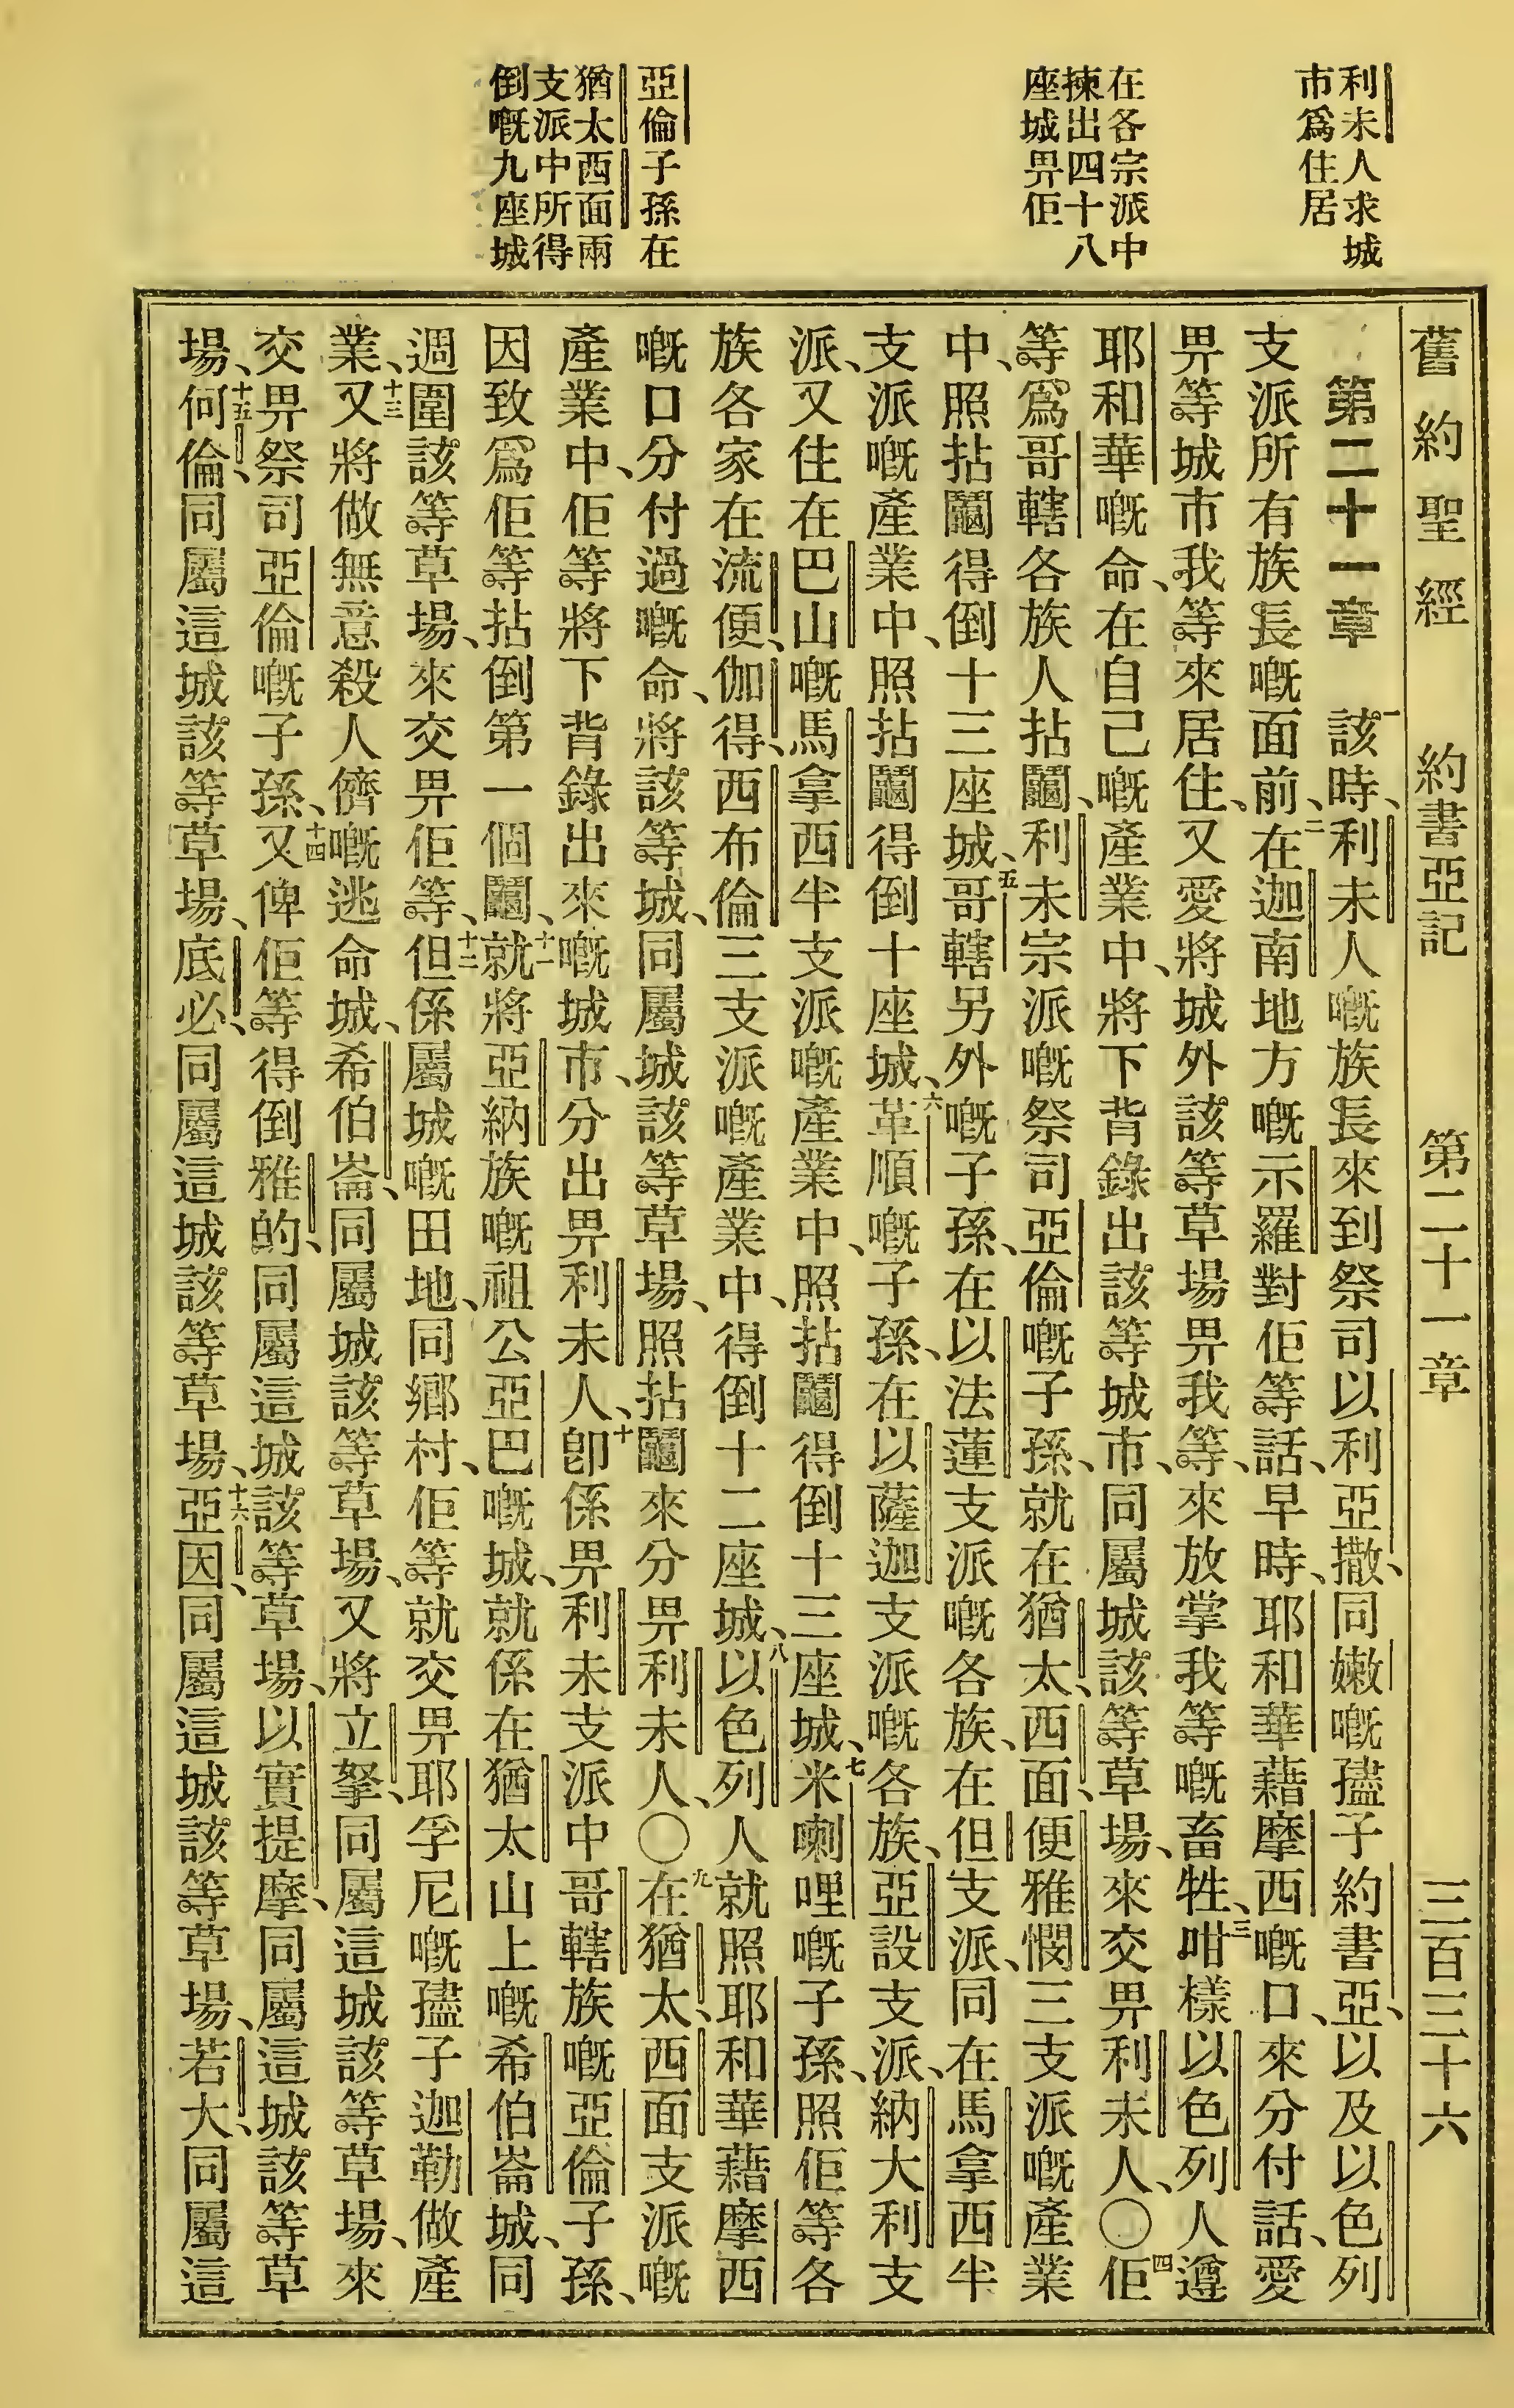 舊約聖經 約書亞記 第二十一章 三百三十六
利未人求城
市爲住居
在各宗派中
揀出四十八
座城畀佢
亞倫子孫在
猶太西面兩
支派中所得
倒嘅九座城
第二十一章 一該時、利未人嘅族長來到祭司以利亞撒、同嫩嘅孻子約書亞、以及以色列
支派所有族長嘅面前、二在迦南地方嘅示羅對佢等話、早時、耶和華藉摩西嘅口、來分付話、愛
畀等城市我等來居住、又愛將城外該等草場畀我等、來放掌我等嘅畜牲、三咁樣以色列人遵
耶和華嘅命、在自己嘅產業中、將下背錄出該等城市、同屬城該等草場、來交畀利未人、〇四佢
等爲哥轄各族人拈鬮、利未宗派嘅祭司亞倫嘅子孫、就在猶太、西面、便雅憫三支派嘅產業
中、照拈鬮得倒十三座城、五哥轄另外嘅子孫、在以法蓮支派嘅各族、在但支派、同在馬拿西半
支派嘅產業中、照拈鬮得倒十座城、六革順嘅子孫、在以薩迦支派嘅各族、亞設支派、納大利支
派、又住在巴山嘅馬拿西半支派嘅產業中、照拈鬮得倒十三座城、七米喇哩嘅子孫、照佢等各
族各家在流便、伽得、西布倫三支派嘅產業中、得倒十二座城、八以色列人就照耶和華藉摩西
嘅口分付過嘅命、將該等城、同屬城該等草場、照拈鬮來分畀利未人、〇九在猶太、西面支派嘅
產業中、佢等將下背錄出來嘅城市、分出畀利未人、十卽係畀利未支派中哥轄族嘅亞倫子孫、
因致爲佢等拈倒第一個鬮、十一就將亞納族嘅祖公亞巴嘅城、就係在猶太山上嘅希伯崙城、同
週圍該等草場、來交畀佢等、十二但係屬城嘅田地、同鄉村、佢等就交畀耶孚尼嘅孻子迦勒做產
業、十三又將做無意殺人儕嘅逃命城、希伯崙、同屬城該等草場、又將立拏、同屬這城該等草場、來
交畀祭司亞倫嘅子孫、十四又俾佢等得倒雅的、同屬這城該等草場、以實提摩、同屬這城該等草
場、十五何倫、同屬這城該等草場、底必、同屬這城該等草場、十六亞因、同屬這城該等草場、若大、同屬這